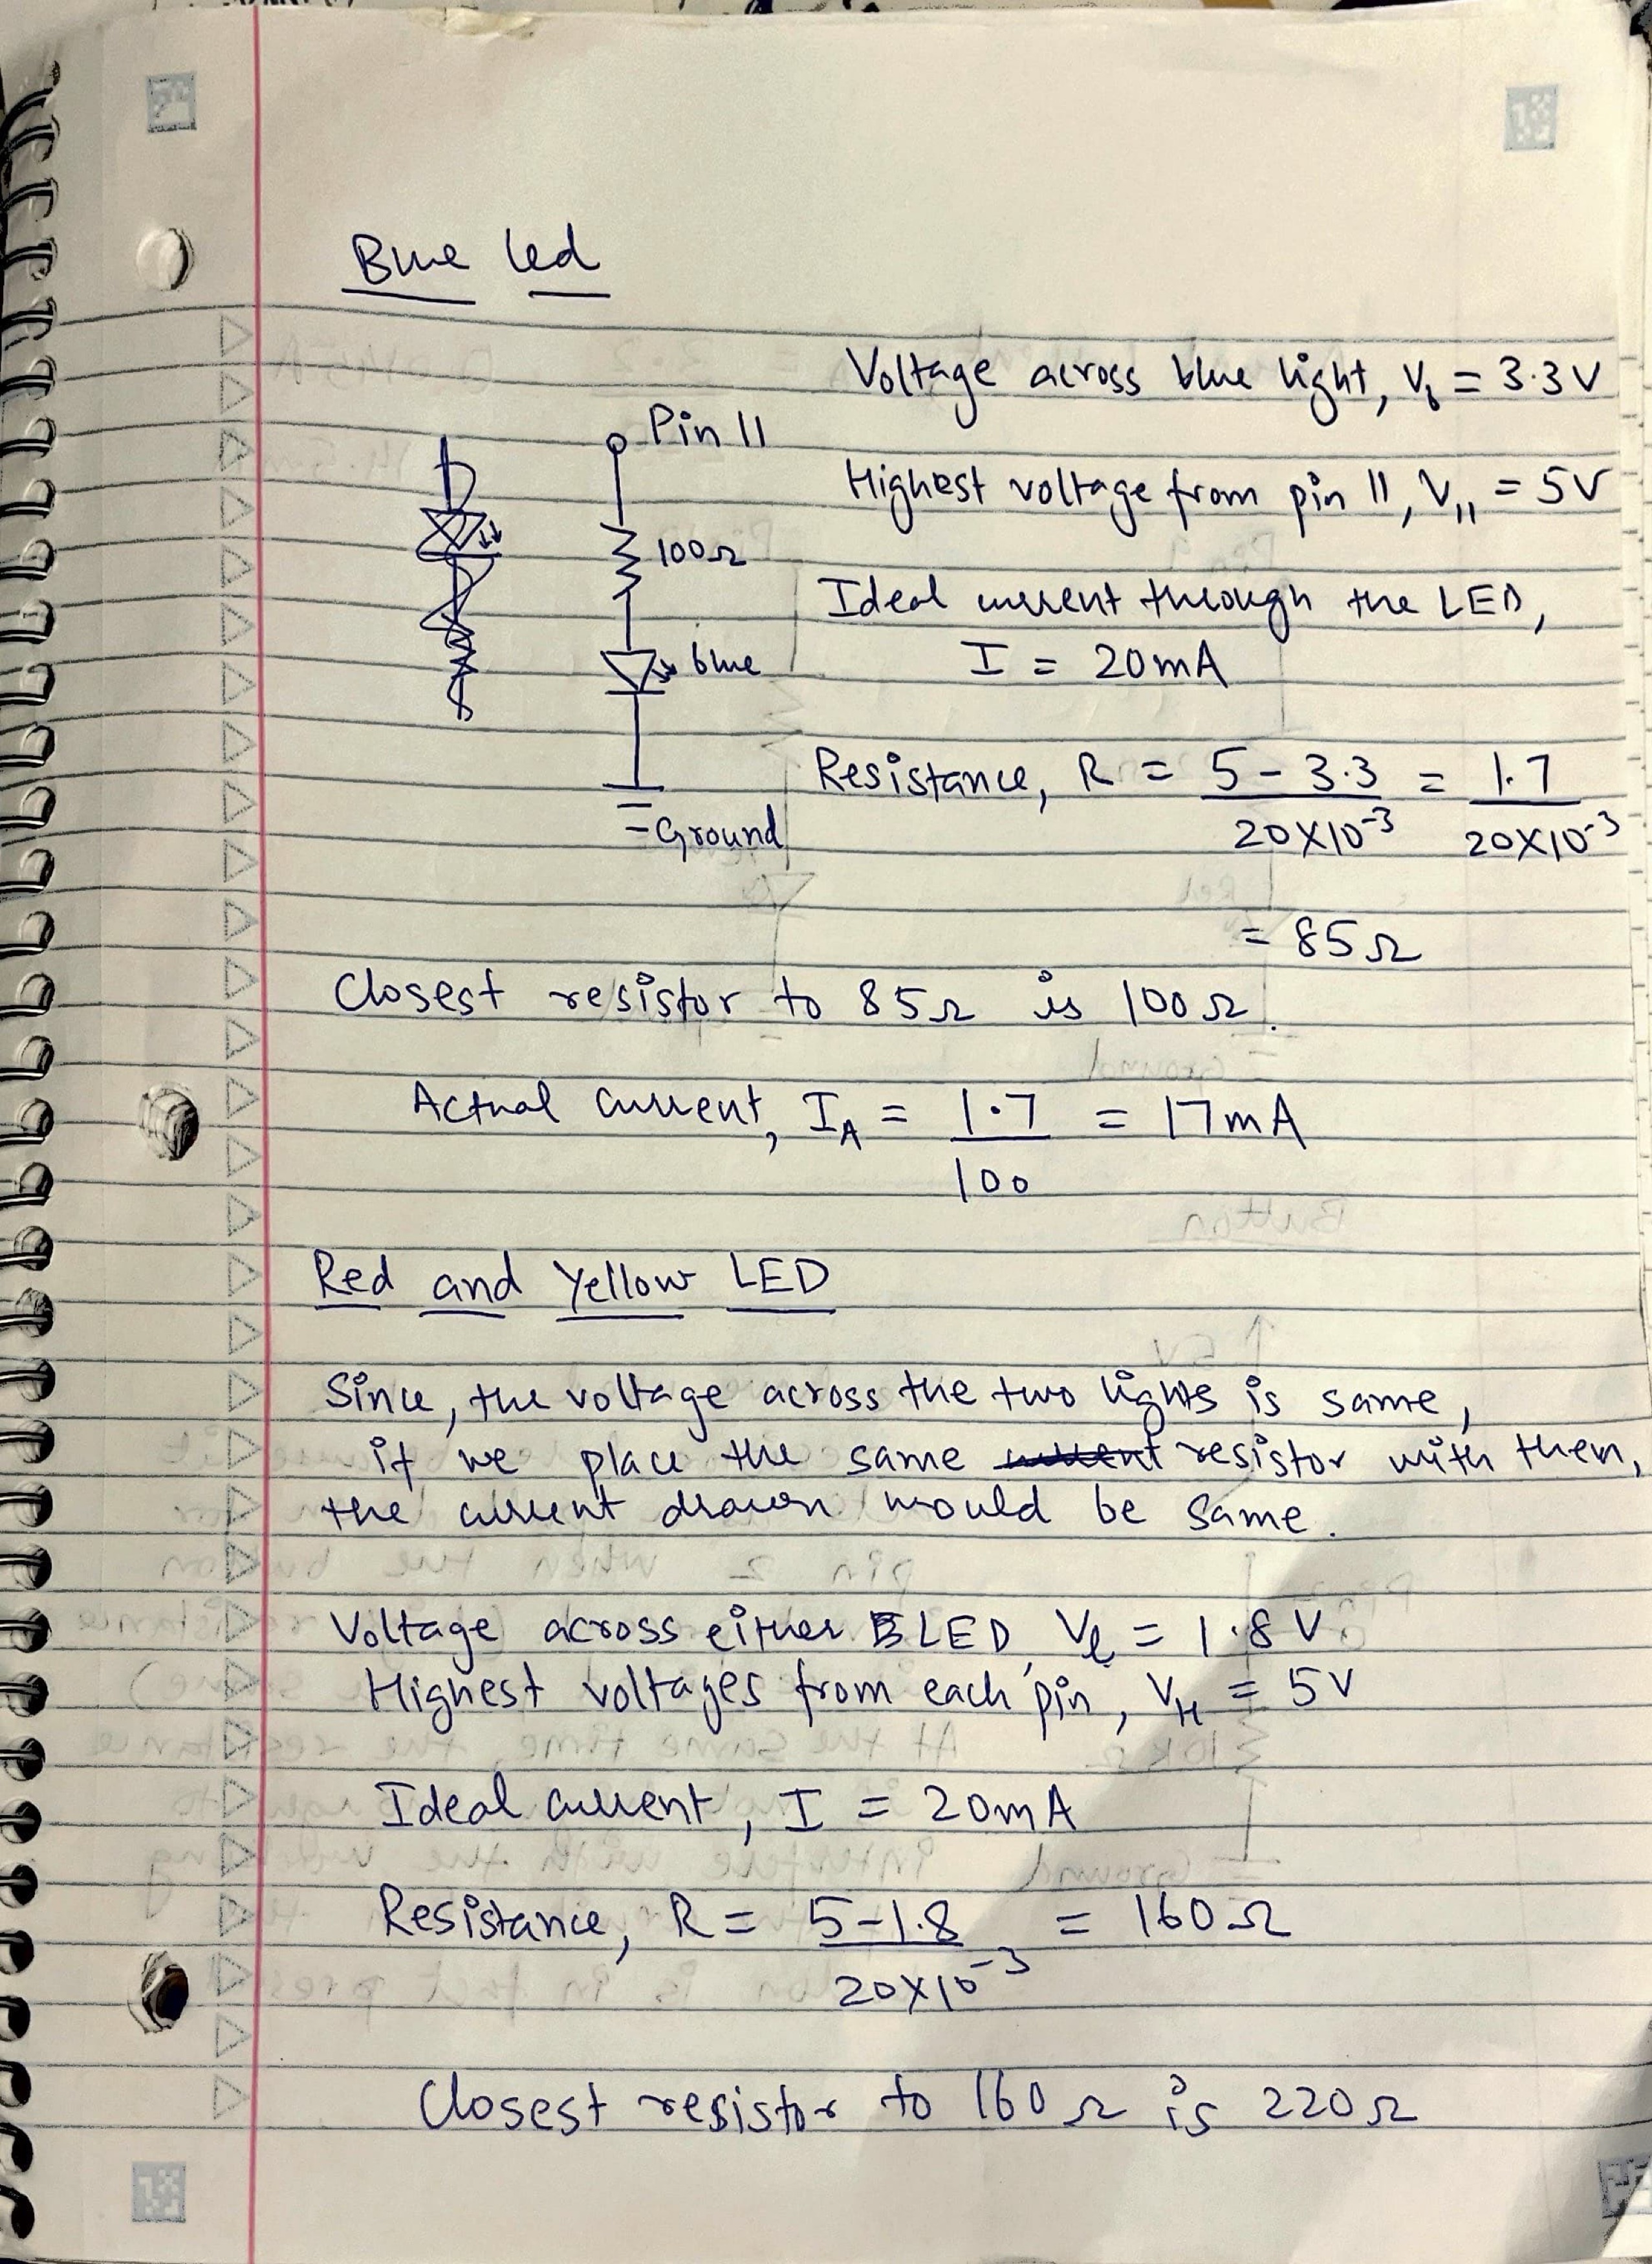 Blue led
Voltage across blue light, Vb = 3.3V
Pin 11
Highest voltage from pin 11, V11 = 5V
100Ω
Ideal current through the LED,
blue
I = 20mA
Resistance, R = 5 - 3.3 / 20X10^-3 = 1.7 / 20X10^-3
Ground
= 85Ω
Closest resistor to 85Ω is 100Ω.
Actual current, IA = 1.7 / 100 = 17mA
Red and Yellow LED
Since, the voltage across the two lights is same,
if we place the same current resistor with then,
the current drawn would be same.
Voltage across either LED, Vl = 1.8V
Highest voltages from each pin, VH = 5V
Ideal current, I = 20mA
Resistance, R = 5-1.8 / 20X10^-3 = 160Ω
Closest resistor to 160Ω is 220Ω